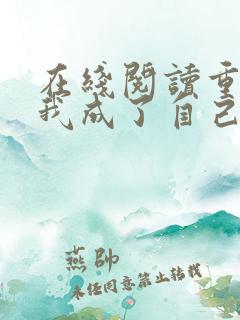 在綫閱讀重
我成了自己
燕帥
未经同意禁止转载